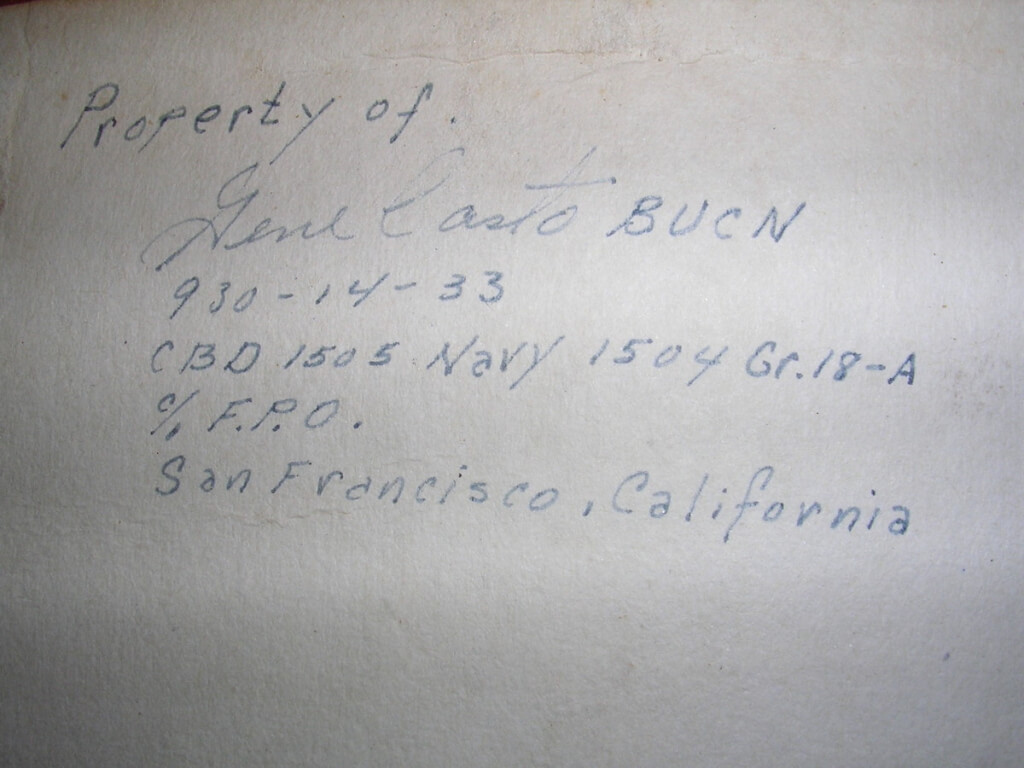 Property of.
Gene Casto BUCN
930-14-33
CBD 1505 Navy 1504 Gr.18-A
c/o F.P.O.
San Francisco, California